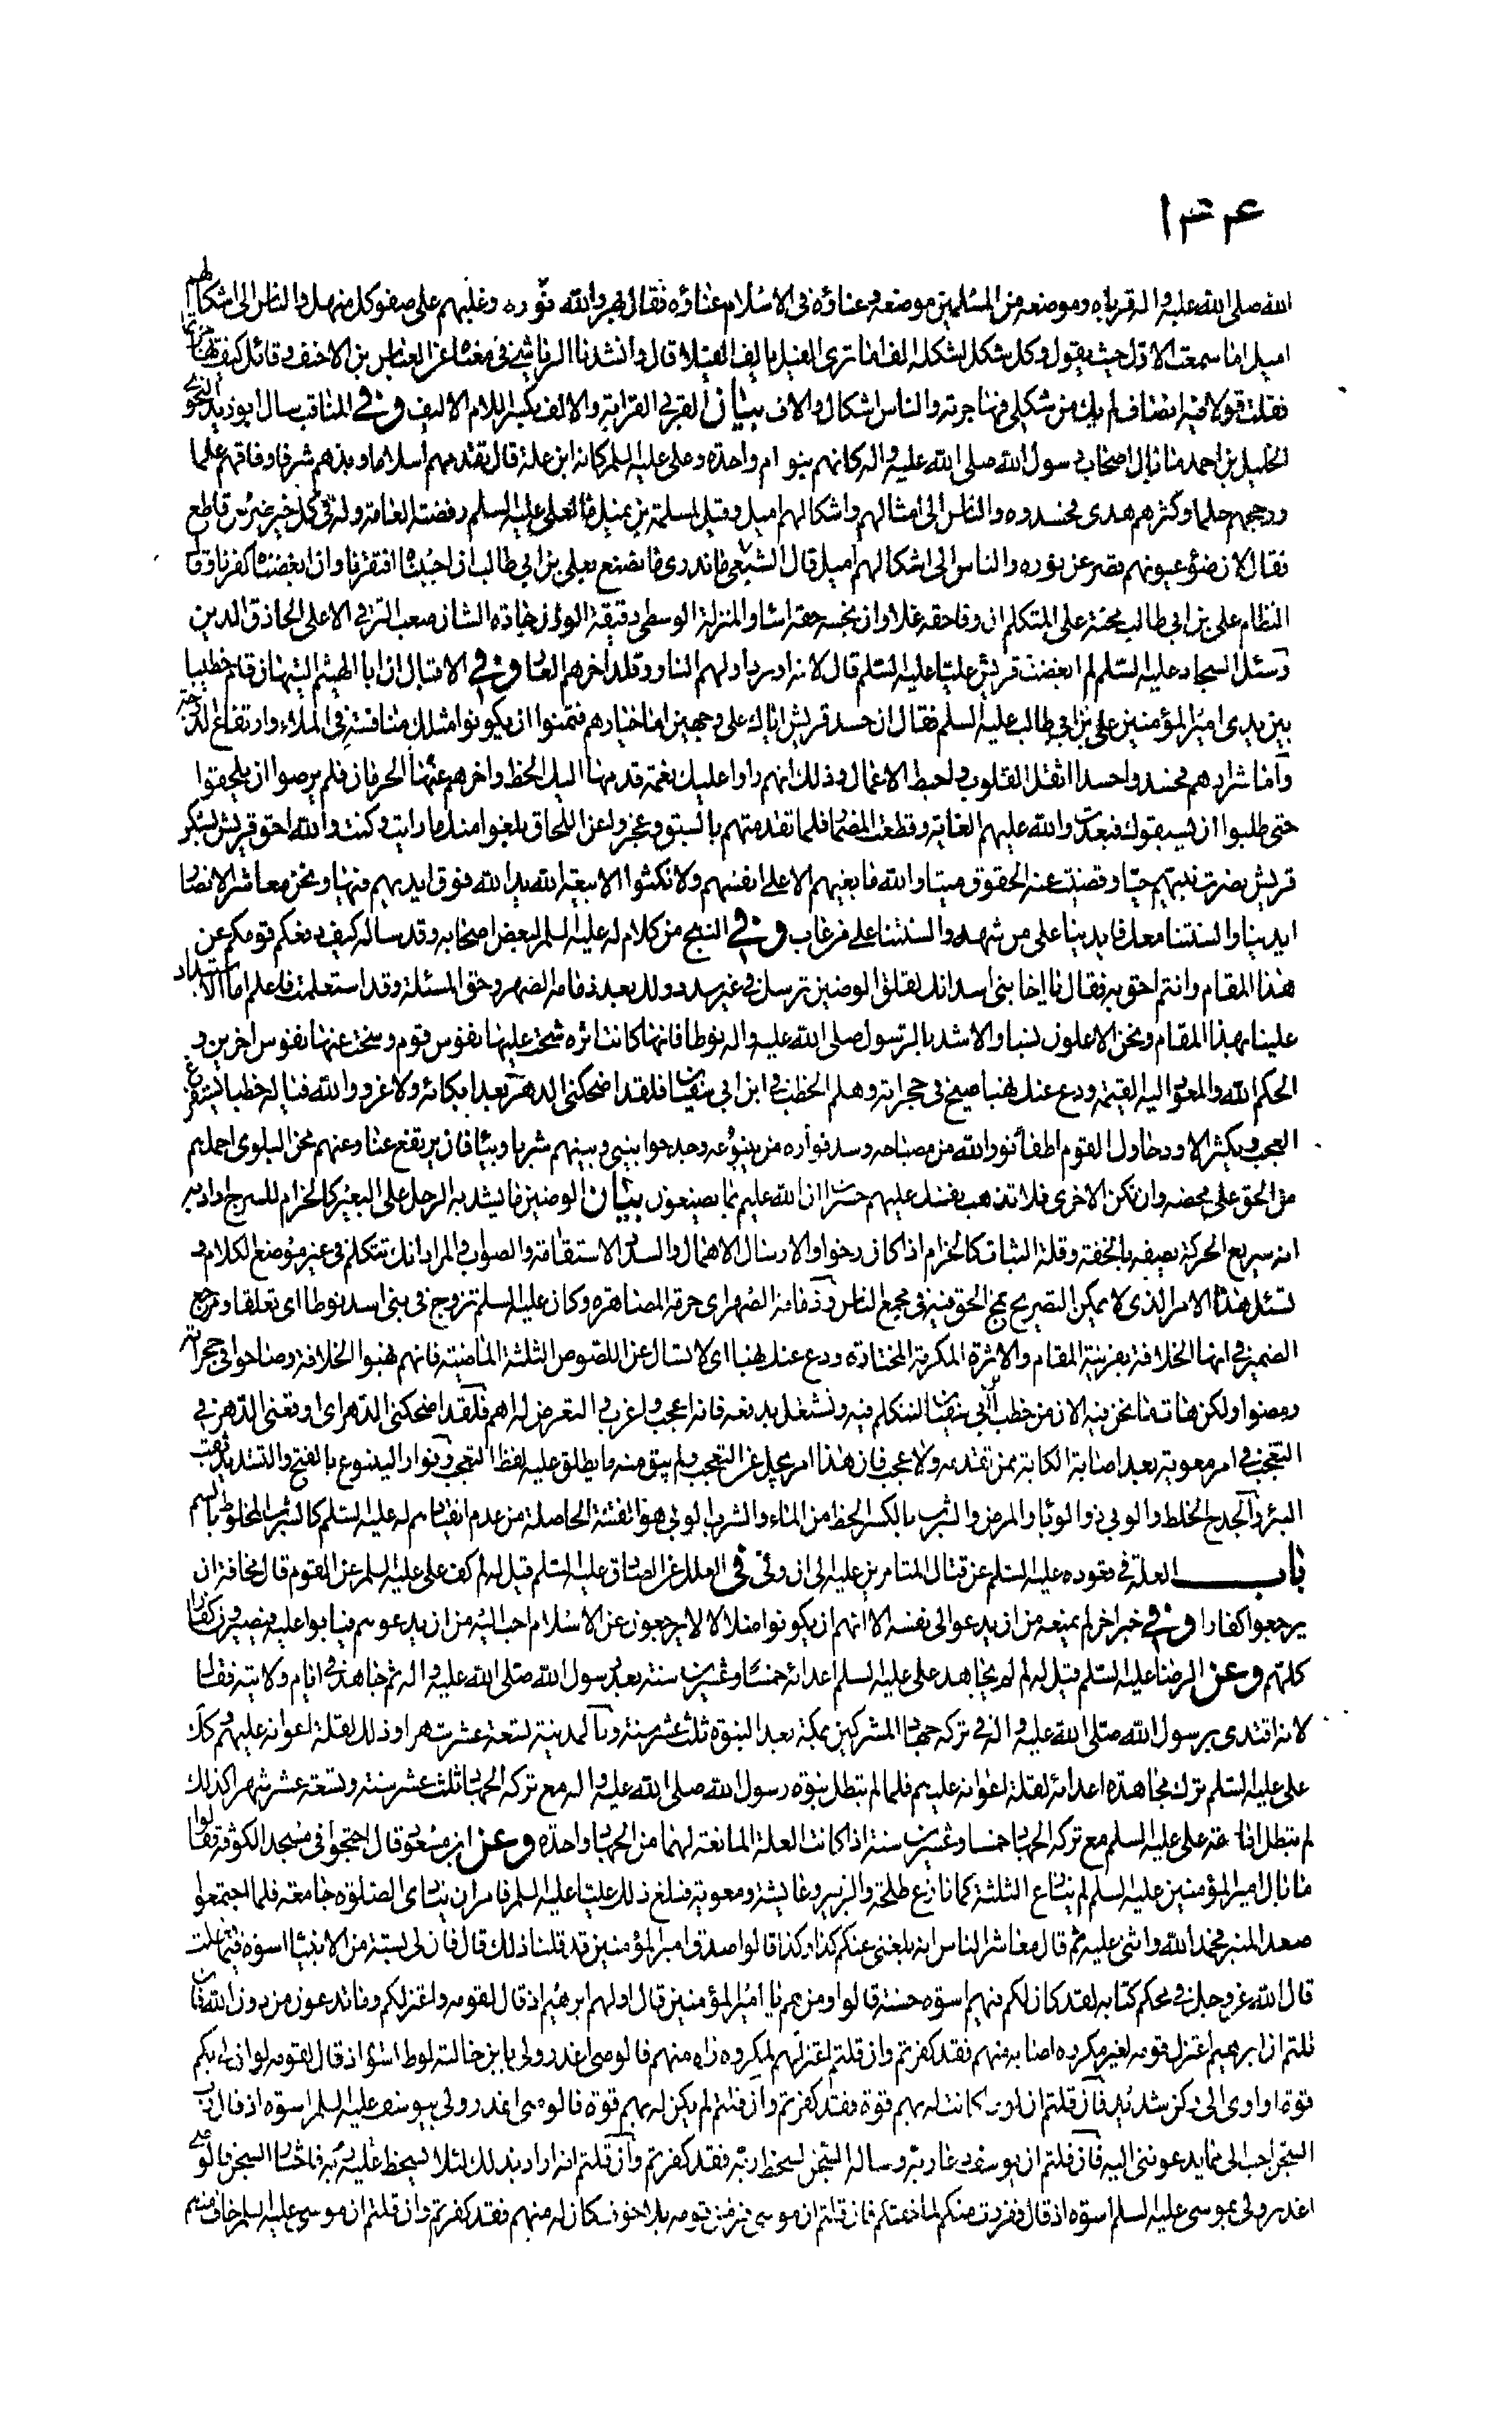 ١٣٤
الله صلى الله عليه واله قرباه وموضعه من المسلمين موضعه وعناؤه فى الاسلام عناؤه فقال بهر والله نوره وغلبهم على صفو كل منهل والناس الى اشكالهم
اميل اما سمعت الاول حيث يقول وكل شكل لشكله الف اما ترى الفيل يالف الفيلا قال وانشدنا الرياشى فى معناه عن العباس بن الاحنف وقائل كيف تهاجرتما
فقلت قولا فيه انصاف لم يك من شكلى فهاجرته والناس اشكال والاف بيان القربى القرابة والالف بكسر اللام الاليف وفي المناقب سال ابو زيد النحوى
الخليل بن احمد ما بال اصحاب رسول الله صلى الله عليه واله كانهم بنو ام واحدة وعلى عليه السلم كانه ابن علة قال تقدمهم اسلاما وبذهم شرفا وفاقهم علما
ورجحهم حلما وكثرهم هدى فحسدوه والناس الى امثالهم واشكالهم اميل وقيل لمسلمة بن نميل ما لعلى عليه السلم رفضته العامة وله فى كل خير ضرس قاطع
فقال لان ضوء عيونهم تقصر عن نوره والناس الى اشكالهم اميل قال الشعبى ما ندرى ما نصنع بعلى بن ابي طالب ان احببناه افتقرنا وان ابغضناه كفرنا وقال
النظام على بن ابي طالب محنة على المتكلم ان وفا حقه غلا وان بخسه حقه اسا والمنزلة الوسطى دقيقة الوزن حادة الشان صعب الترقى الا على الحاذق الدين
وسئل السجاد عليه السلم لم ابغضت قريش عليا عليه السلم قال لانه اورد اولهم النار وقلد اخرهم العار وفي الاقبال ان ابا الهيثم التيهان قام خطيبا
بين يدى امير المؤمنين على بن ابي طالب عليه السلم فقال ان حسد قريش اياك على وجهين اما خيارهم فتمنوا ان يكونوا مثلك منافسة فى الملاء وارتفاع الدرجة
واما شرارهم فحسدوا حسدا اثقل القلوب واحبط الاعمال وذلك انهم راوا عليك نعمة قدمها اليك الحظ واخرهم عنها الحرمان فلم يرضوا ان يلحقوا
حتى طلبوا ان يسبقوك فبعدت والله عليهم الغاية وقطعت المضمار فلما تقدمتهم بالسبق وعجزوا عن اللحاق بلغوا منك ما رايت وكنت والله احق قريش بشكر
قريش نصرت نبيهم حيا وقضيت عنه الحقوق ميتا والله ما بغيهم الا على انفسهم ولا نكثوا الا بيعة الله يد الله فوق ايديهم فيها ونحن معاشر الانصار
ايدينا والسنتنا معك فايدينا على من شهد والسنتنا على من غاب وفي النهج من كلام له عليه السلم لبعض اصحابه وقد ساله كيف دفعكم قومكم عن
هذا المقام وانتم احق به فقال يا اخا بنى اسد انك لقلق الوضين ترسل فى غير سدد ولك بعد ذمامة الصهر وحق المسئلة وقد استعلمت فاعلم اما الاستبداد
علينا بهذا المقام ونحن الاعلون نسبا والاشد بالرسول صلى الله عليه واله نوطا فانها كانت اثرة شحت عليها نفوس قوم وسخت عنها نفوس اخرين و
الحكم الله والمعود اليه القيمة ودع عنك نهبا صيح فى حجراته وهلم الخطب فى ابن ابي سفيان فلقد اضحكنى الدهر بعد ابكائه ولا غرو والله فيا له خطبا يستفرغ
العجب ويكثر الاود حاول القوم اطفاء نور الله من مصباحه وسد فواره من ينبوعه وجدحوا بينى وبينهم شربا وبيئا فان يرتفع عنا وعنهم محن البلوى احملهم
من الحق على محضه وان تكن الاخرى فلا تذهب نفسك عليهم حسرات ان الله عليم بما يصنعون بيان الوضين ما يشد به الرحل على البعير كالحزام للسرج اراد به
انه سريع الحركة يصفه بالخفة وقلة الثبات كالحزام اذا كان رخوا والارسال الاهمال والسدد الاستقامة والصواب والمراد انك تتكلم فى غير موضع الكلام و
تسئل هذا الامر الذى لا يمكن التصريح بمخ الحق فيه فى مجمع الناس وذمامة الصهر اى حرمة المصاهرة وكان عليه السلم تزوج فى بنى اسد نوطا اى تعلقا ومرجع
الضمير فى انها الخلافة بقرينة المقام والاثرة المكرمة المختارة ودع عنك نهبا اى لا تسال عن اللصوص الثلثة الماضية فانهم نهبوا الخلافة وصاحوا فى حجراته
ومضوا ولكن هات ما نحن فيه الان من خطب ابن ابي سفيان لنتكلم فيه ونشتغل بدفعه فانه اعجب واغرب والتعرض له اهم فلقد اضحكنى الدهر اى اوقعنى الدهر فى
التعجب فى امر معوية بعد اصابة الكابة بمن تقدمه ولا عجب فان هذا امر يجل عن التعجب ولم يبق منه ما يطلق عليه لفظ التعجب وفوار الينبوع بالفتح والتشديد ثقب
البئر والجدح الخلط والوبى ذو الوباء والمرض والشرب بالكسر الحظ من الماء والشرب الوبى هو الفتنة الحاصلة من عدم انقيادهم له عليه السلم كالشرب المخلوط بالسم
باب العلة فى قعوده عليه السلم عن قتال المتامرين عليه الى ان ولى فى العلل عن الصادق عليه السلم قيل له لم كف على عليه السلم عن القوم قال مخافة ان
يرجعوا كفارا وفي خبر اخر لم يمنعه من ان يدعو الى نفسه الا انهم ان يكونوا ضلالا لا يرجعون عن الاسلام احب اليه من ان يدعوهم فيابوا عليه فيصيرون كفارا
كلهم وعن الرضا عليه السلم قيل له لم لم يجاهد على عليه السلم اعدائه خمسا وعشرين سنة بعد رسول الله صلى الله عليه واله ثم جاهد فى ايام ولايته فقال
لانه اقتدى برسول الله صلى الله عليه واله فى تركه جهاد المشركين بمكة بعد النبوة ثلث عشر سنة وبالمدينة تسعة عشر شهرا وذلك لقلة اعوانه عليهم وكذلك
على عليه السلم ترك مجاهدة اعدائه لقلة اعوانه عليهم فلما لم تبطل نبوة رسول الله صلى الله عليه واله مع تركه الجهاد ثلث عشر سنة وتسعة عشر شهرا كذلك
لم تبطل امامة على عليه السلم مع تركه الجهاد خمسا وعشرين سنة اذا كانت العلة المانعة لهما من الجهاد واحدة وعن ابن مسعود قال احتجوا فى مسجد الكوفة فقالوا
ما بال امير المؤمنين عليه السلم لم ينازع الثلثة كما نازع طلحة والزبير وعايشة ومعوية فبلغ ذلك عليا عليه السلم فامر ان ينادى الصلوة جامعة فلما اجتمعوا
صعد المنبر فحمد الله واثنى عليه ثم قال معاشر الناس انه بلغنى عنكم كذا وكذا قالوا صدق امير المؤمنين قد قلنا ذلك قال فان لى بستة من الانبياء اسوة فيما فعلت
قال الله عز وجل فى محكم كتابه لقد كان لكم فيهم اسوة حسنة قالوا ومن هم يا امير المؤمنين قال اولهم ابرهيم اذ قال لقومه واعتزلكم وما تدعون من دون الله فان
قلتم ان ابرهيم اعتزل قومه لغير مكروه اصابه منهم فقد كفرتم وان قلتم اعتزلهم لمكروه راه منهم فالوصى اعذر ولى بابن خالته لوط اسوة اذ قال لقومه لو ان لى بكم
قوة او اوى الى ركن شديد فان قلتم ان لوطا كانت له بهم قوة فقد كفرتم وان قلتم لم يكن له بهم قوة فالوصى اعذر ولى بيوسف عليه السلم اسوة اذ قال رب
السجن احب الى مما يدعوننى اليه فان قلتم ان يوسف دعا ربه وساله السجن لسخط ربه فقد كفرتم وان قلتم انه اراد بذلك لئلا يسخط عليه ربه فاختار السجن فالوصى
اعذر ولى بموسى عليه السلم اسوة اذ قال ففررت منكم لما خفتكم فان قلتم ان موسى فر من قومه بلا خوف كان له منهم فقد كفرتم وان قلتم ان موسى عليه السلم خاف منهم